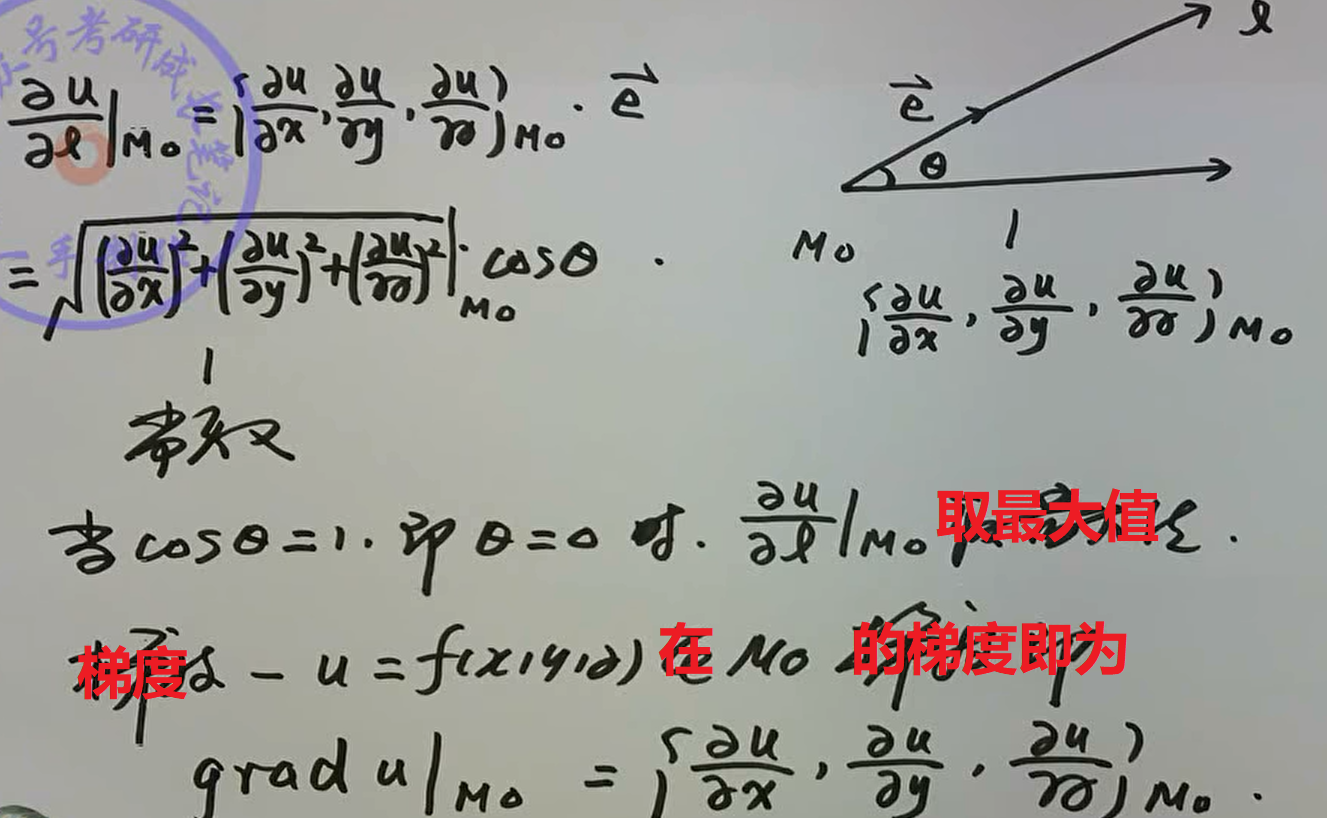 公众号考研成功笔记
∂u/∂l|M₀ = {∂u/∂x, ∂u/∂y, ∂u/∂z}M₀ · e⃗
= √((∂u/∂x)² + (∂u/∂y)² + (∂u/∂z)²)|M₀ · cosθ .
常数
l
e⃗
θ
M₀
{∂u/∂x, ∂u/∂y, ∂u/∂z}M₀
当 cosθ = 1. 即 θ = 0 时. ∂u/∂l|M₀ 取最大值 .
梯度 — u = f(x,y,z) 在 M₀ 的梯度即为
grad u|M₀ = {∂u/∂x, ∂u/∂y, ∂u/∂z}M₀ .